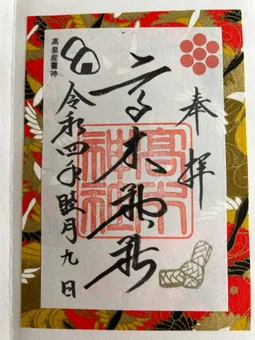 奉拝
高木神社
高木神社
高皇産靈神
令和四年睦月九日